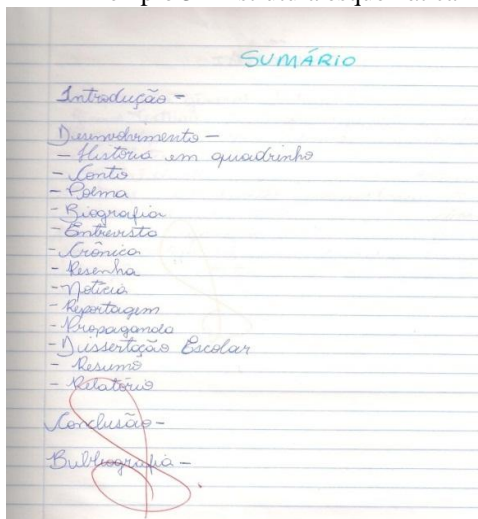 SUMÁRIO
Introdução -
Desenvolvimento -
- História em quadrinho
- Conto
- Poema
- Biografia
- Entrevista
- Crônica
- Resenha
- Notícia
- Reportagem
- Propaganda
- Dissertação Escolar
- Resumo
- Relatório
Conclusão -
Bibliografia -